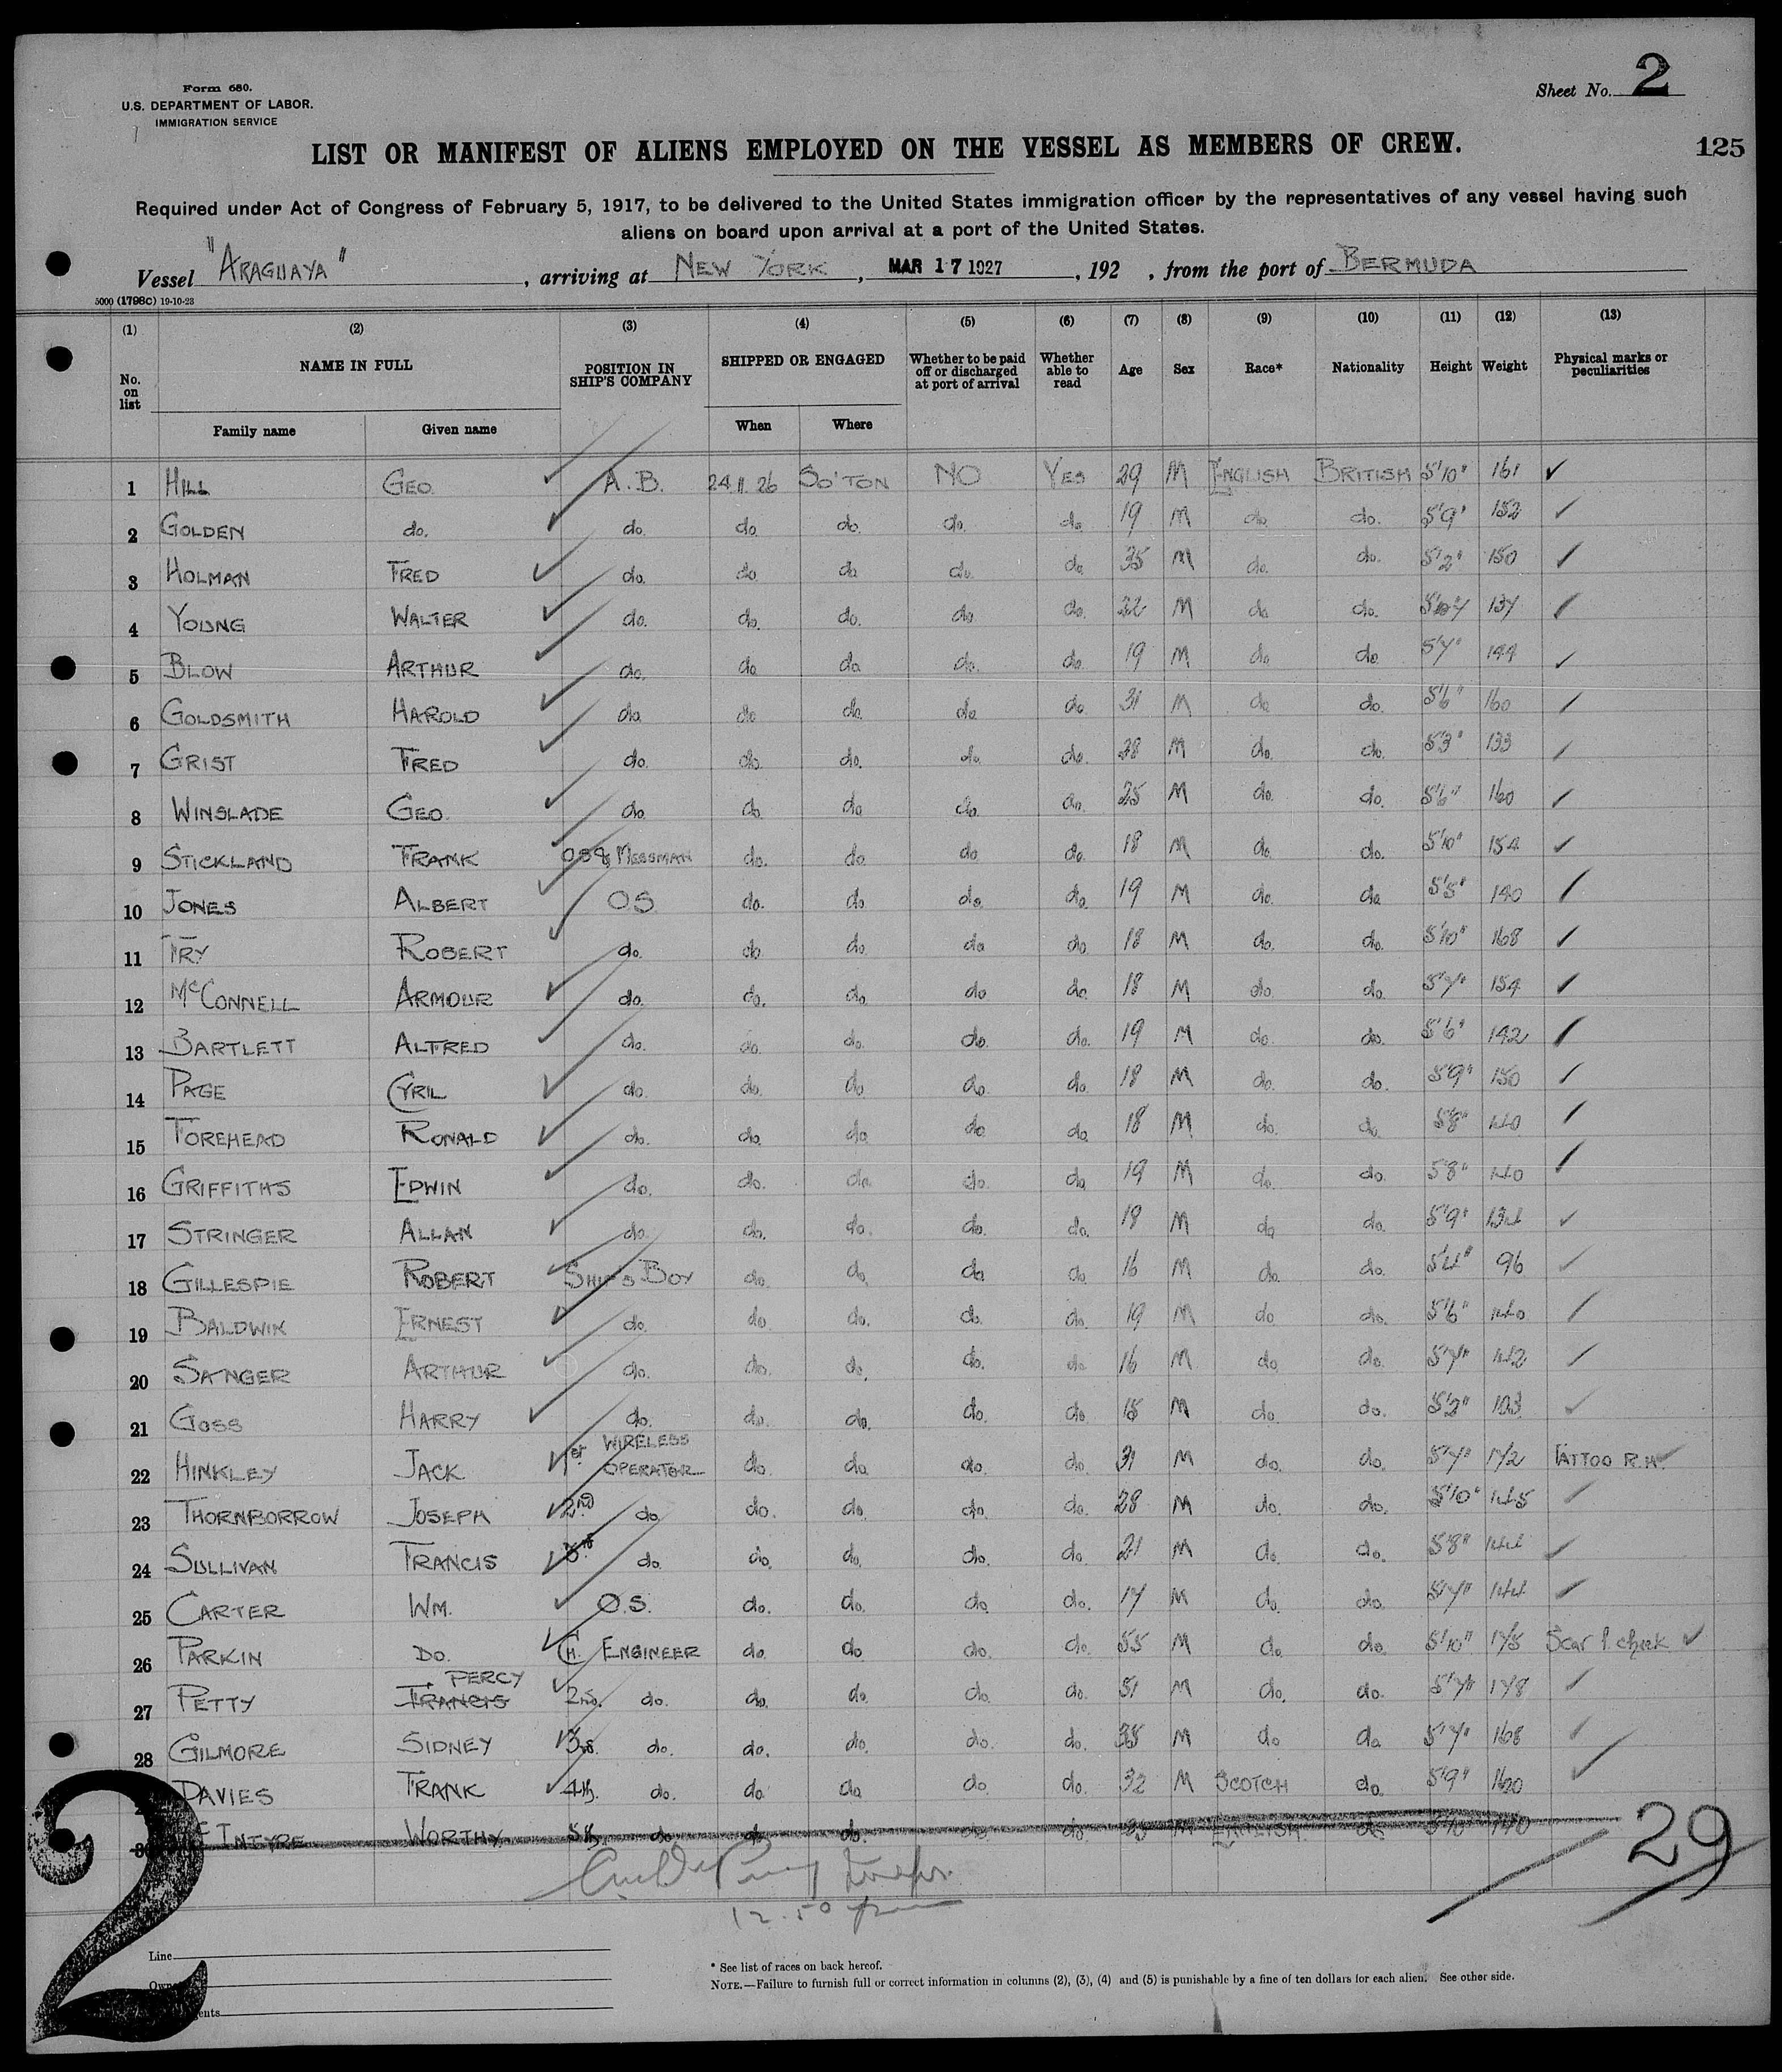 Form 680.
U.S. DEPARTMENT OF LABOR.
IMMIGRATION SERVICE
Sheet No. 2
LIST OR MANIFEST OF ALIENS EMPLOYED ON THE VESSEL AS MEMBERS OF CREW.
125
Required under Act of Congress of February 5, 1917, to be delivered to the United States immigration officer by the representatives of any vessel having such
aliens on board upon arrival at a port of the United States.
Vessel "ARAGUAYA", arriving at NEW YORK, MAR 17 1927, 192 , from the port of BERMUDA
5000 (1798C) 19-10-23
(1) (2) (3) (4) (5) (6) (7) (8) (9) (10) (11) (12) (13)
No. on list NAME IN FULL POSITION IN SHIP'S COMPANY SHIPPED OR ENGAGED Whether to be paid off or discharged at port of arrival Whether able to read Age Sex Race* Nationality Height Weight Physical marks or peculiarities
Family name Given name When Where
1 HILL GEO. A.B. 24.11.26 SO'TON NO YES 29 M ENGLISH BRITISH 5'10" 161 ✓
2 GOLDEN do. do. do. do. do. do. 19 M do. do. 5'9" 152 ✓
3 HOLMAN FRED do. do. do. do. do. 35 M do. do. 5'2" 150 ✓
4 YOUNG WALTER do. do. do. do. do. 22 M do. do. 137 ✓
5 BLOW ARTHUR do. do. do. do. do. 19 M do. do. 5'7" 144 ✓
6 GOLDSMITH HAROLD do. do. do. do. do. 31 M do. do. 5'6" 160 ✓
7 GRIST FRED do. do. do. do. do. 38 M do. do. 5'3" 133 ✓
8 WINSLADE GEO. do. do. do. do. do. 25 M do. do. 5'6" 160 ✓
9 STICKLAND FRANK OS & MESSMAN do. do. do. do. 18 M do. do. 5'10" 154 ✓
10 JONES ALBERT OS do. do. do. do. 19 M do. do. 5'5" 140 ✓
11 FRY ROBERT do. do. do. do. do. 18 M do. do. 5'10" 168 ✓
12 McCONNELL ARMOUR do. do. do. do. do. 18 M do. do. 5'7" 154 ✓
13 BARTLETT ALFRED do. do. do. do. do. 19 M do. do. 5'6" 142 ✓
14 PAGE CYRIL do. do. do. do. do. 18 M do. do. 5'9" 150 ✓
15 FOREHEAD RONALD do. do. do. do. do. 18 M do. do. 5'8" 140 ✓
16 GRIFFITHS EDWIN do. do. do. do. do. 19 M do. do. 5'8" 140 ✓
17 STRINGER ALLAN do. do. do. do. do. 18 M do. do. 5'9" 134 ✓
18 GILLESPIE ROBERT SHIP'S BOY do. do. do. do. 16 M do. do. 5'4" 96 ✓
19 BALDWIN ERNEST do. do. do. do. do. 19 M do. do. 5'6" 140 ✓
20 SANGER ARTHUR do. do. do. do. do. 16 M do. do. 5'7" 142 ✓
21 GOSS HARRY do. do. do. do. do. M do. do. 5'2" 103 ✓
22 HINKLEY JACK 1ST WIRELESS OPERATOR do. do. do. do. 31 M do. do. 5'7" 172 TATTOO R.H. ✓
23 THORNBORROW JOSEPH 2ND do. do. do. do. do. 28 M do. do. 5'10" 145 ✓
24 SULLIVAN FRANCIS 3rd do. do. do. do. do. 21 M do. do. 5'8" 144 ✓
25 CARTER WM. O.S. do. do. do. do. 17 M do. do. 5'7" 144 ✓
26 PARKIN DO. CH. ENGINEER do. do. do. do. 55 M do. do. 5'10" 175 Scar l. cheek ✓
27 PETTY FRANCIS PERCY 2nd. do. do. do. do. do. 51 M do. do. 5'7" 178 ✓
28 GILMORE SIDNEY 3rd. do. do. do. do. do. 38 M do. do. 5'7" 168 ✓
DAVIES FRANK 4th. do. do. do. do. do. 32 M SCOTCH do. 5'9" 160 ✓
30 McINTYRE WORTHY 5th. do. do. do. do. do. M ENGLISH do. 5'10" 140
29
12.50 pm
2
Line
* See list of races on back hereof.
NOTE.—Failure to furnish full or correct information in columns (2), (3), (4) and (5) is punishable by a fine of ten dollars for each alien. See other side.